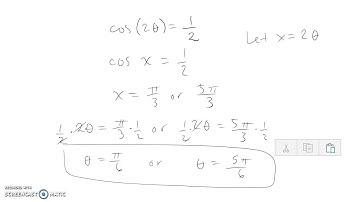 cos(2θ) = 1/2
Let x = 2θ
cos x = 1/2
x = π/3 or 5π/3
1/2 · 2θ = π/3 · 1/2 or 1/2 · 2θ = 5π/3 · 1/2
θ = π/6 or θ = 5π/6
RECORDED WITH
SCREENCAST-O-MATIC